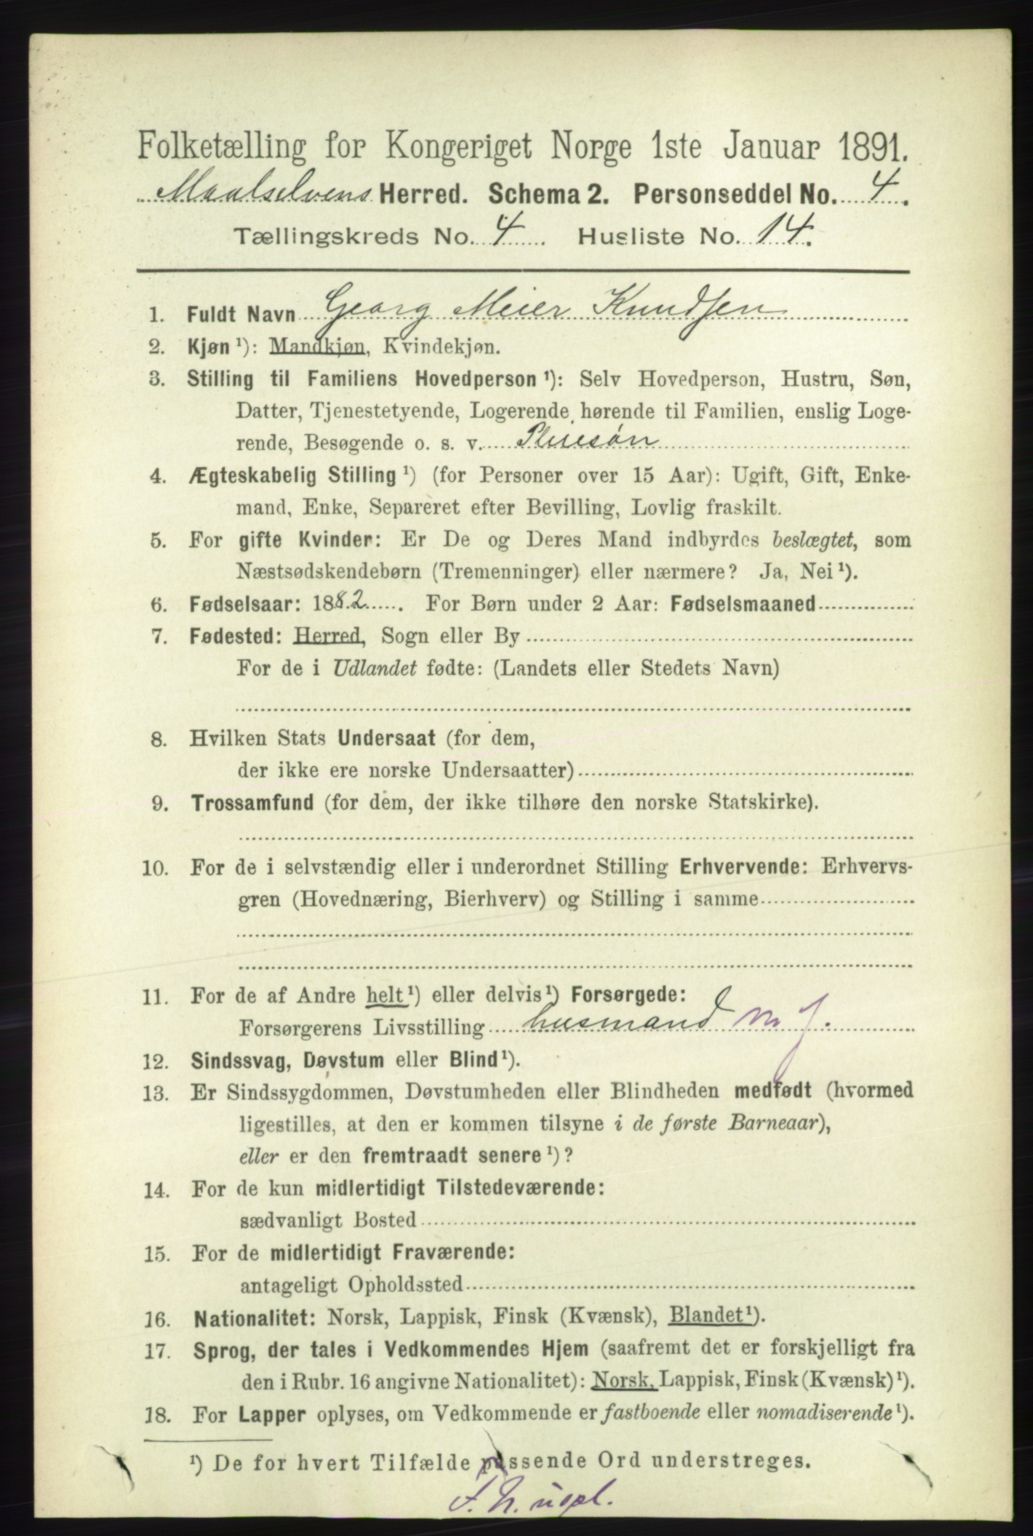 Folketælling for Kongeriget Norge 1ste Januar 1891.
Maalselvens Herred. Schema 2. Personseddel No. 4.
Tællingskreds No. 4. Husliste No. 14.
1. Fuldt Navn Georg Meier Knudsen
2. Kjøn¹): Mandkjøn, Kvindekjøn.
3. Stilling til Familiens Hovedperson¹): Selv Hovedperson, Hustru, Søn,
Datter, Tjenestetyende, Logerende hørende til Familien, enslig Loge-
rende, Besøgende o. s. v. Pleiesøn
4. Ægteskabelig Stilling¹) (for Personer over 15 Aar): Ugift, Gift, Enke-
mand, Enke, Separeret efter Bevilling, Lovlig fraskilt.
5. For gifte Kvinder: Er De og Deres Mand indbyrdes beslægtet, som
Næstsødskendebørn (Tremenninger) eller nærmere? Ja, Nei¹).
6. Fødselsaar: 1882. For Børn under 2 Aar: Fødselsmaaned
7. Fødested: Herred, Sogn eller By
For de i Udlandet fødte: (Landets eller Stedets Navn)
8. Hvilken Stats Undersaat (for dem,
der ikke ere norske Undersaatter)
9. Trossamfund (for dem, der ikke tilhøre den norske Statskirke).
10. For de i selvstændig eller i underordnet Stilling Erhvervende: Erhvervs-
gren (Hovednæring, Bierhverv) og Stilling i samme
11. For de af Andre helt¹) eller delvis¹) Forsørgede:
Forsørgerens Livsstilling husmand m j.
12. Sindssvag, Døvstum eller Blind¹).
13. Er Sindssygdommen, Døvstumheden eller Blindheden medfødt (hvormed
ligestilles, at den er kommen tilsyne i de første Barneaar),
eller er den fremtraadt senere¹)?
14. For de kun midlertidigt Tilstedeværende:
sædvanligt Bosted
15. For de midlertidigt Fraværende:
antageligt Opholdssted
16. Nationalitet: Norsk, Lappisk, Finsk (Kvænsk), Blandet¹).
17. Sprog, der tales i Vedkommendes Hjem (saafremt det er forskjelligt fra
den i Rubr. 16 angivne Nationalitet): Norsk, Lappisk, Finsk (Kvænsk)¹).
18. For Lapper oplyses, om Vedkommende er fastboende eller nomadiserende¹).
¹) De for hvert Tilfælde passende Ord understreges.